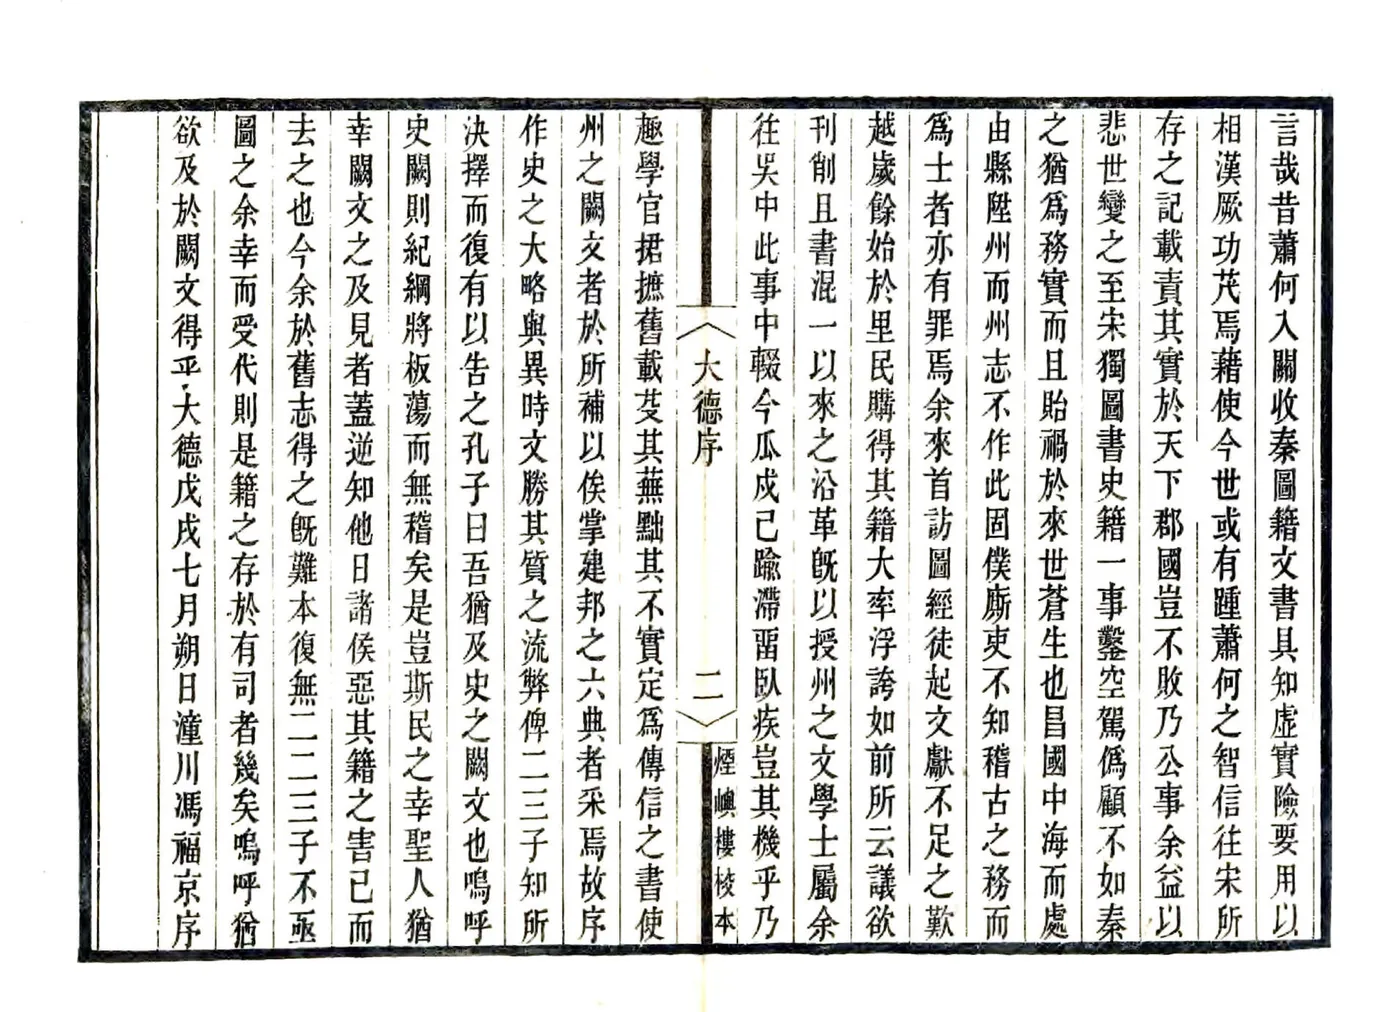 言哉昔蕭何入關收秦圖籍文書具知虛實險要用以
相漢厥功茂焉藉使今世或有踵蕭何之智信往宋所
存之記載責其實於天下郡國豈不敗乃公事余益以
悲世變之至宋獨圖書史籍一事鑿空駕僞顧不如秦
之猶爲務實而且貽禍於來世蒼生也昌國中海而處
由縣陞州而州志不作此固僕廝吏不知稽古之務而
爲士者亦有罪焉余來首訪圖經徒起文獻不足之歎
越歲餘始於里民購得其籍大率浮誇如前所云議欲
刊削且書混一以來之沿革旣以授州之文學士屬余
往吳中此事中輟今瓜戍已踰滯畱臥疾豈其機乎乃
大德序
二
煙嶼樓校本
趣學官捃摭舊載芟其蕪黜其不實定爲傳信之書使
州之闕文者於所補以俟掌建邦之六典者采焉故序
作史之大略與異時文勝其質之流弊俾二三子知所
決擇而復有以告之孔子曰吾猶及史之闕文也嗚呼
史闕則紀綱將板蕩而無稽矣是豈斯民之幸聖人猶
幸闕文之及見者蓋逆知他日諸侯惡其籍之害己而
去之也今余於舊志得之旣難本復無二二三子不亟
圖之余幸而受代則是籍之存於有司者幾矣嗚呼猶
欲及於闕文得乎大德戊戌七月朔日潼川馮福京序